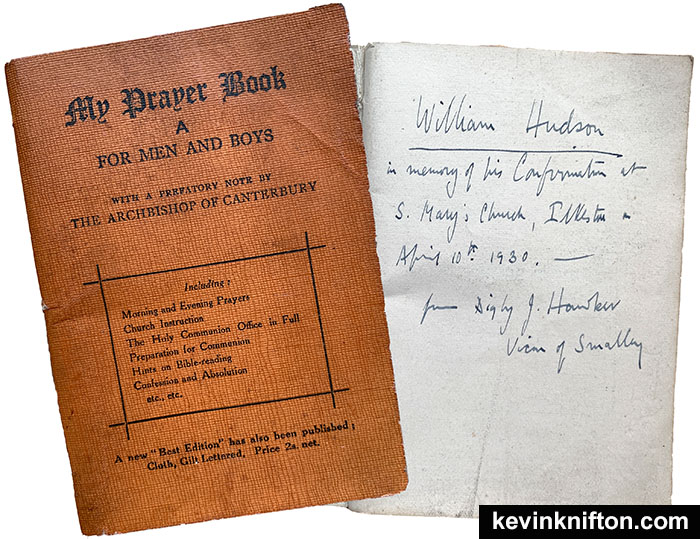 My Prayer Book
A
FOR MEN AND BOYS
WITH A PREFATORY NOTE BY
THE ARCHBISHOP OF CANTERBURY
Including:
Morning and Evening Prayers
Church Instruction
The Holy Communion Office in Full
Preparation for Communion
Hints on Bible-reading
Confession and Absolution
etc., etc.
A new "Best Edition" has also been published;
Cloth, Gilt Lettered, Price 2s. net.
William Hudson
in memory of his Confirmation at
S. Mary's Church, Ilkeston on
April 10th 1930. —
from Digby J. Hawker
Vicar of Smalley
kevinknifton.com